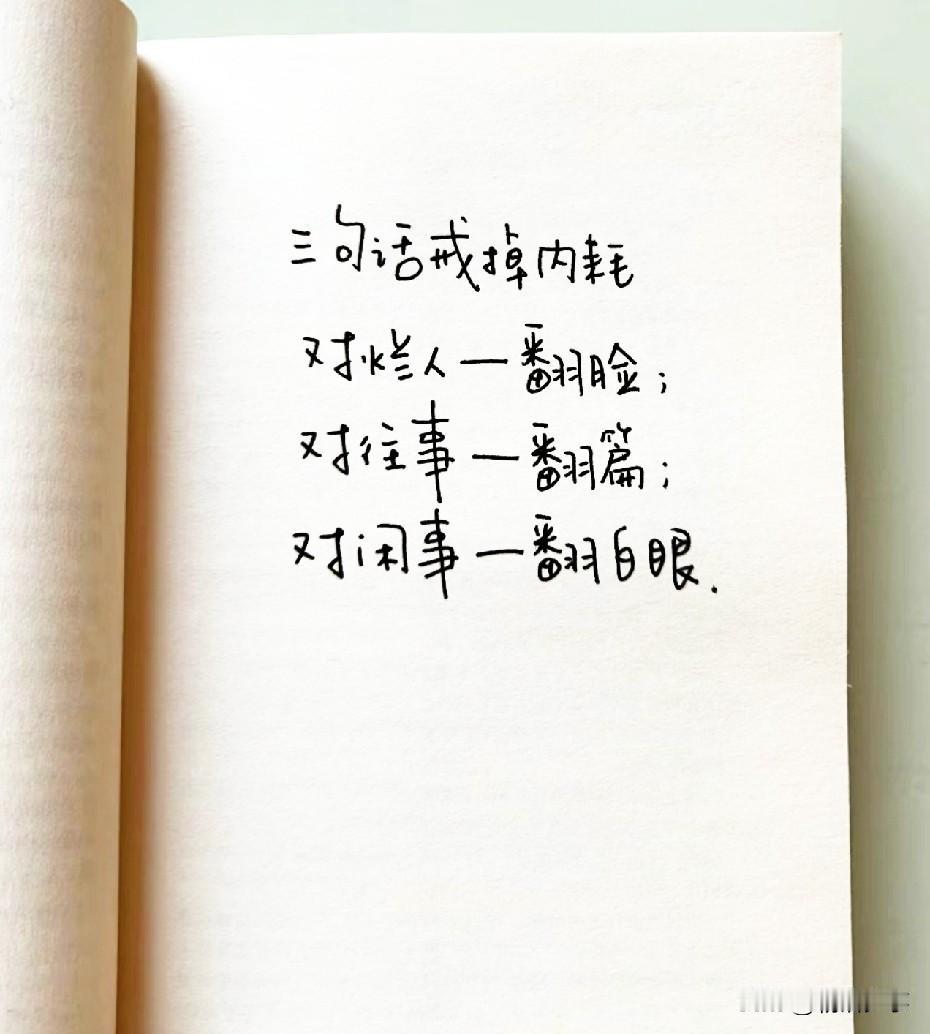 三句话戒掉内耗
对烂人一翻脸；
对往事一翻篇；
对闲事一翻白眼.